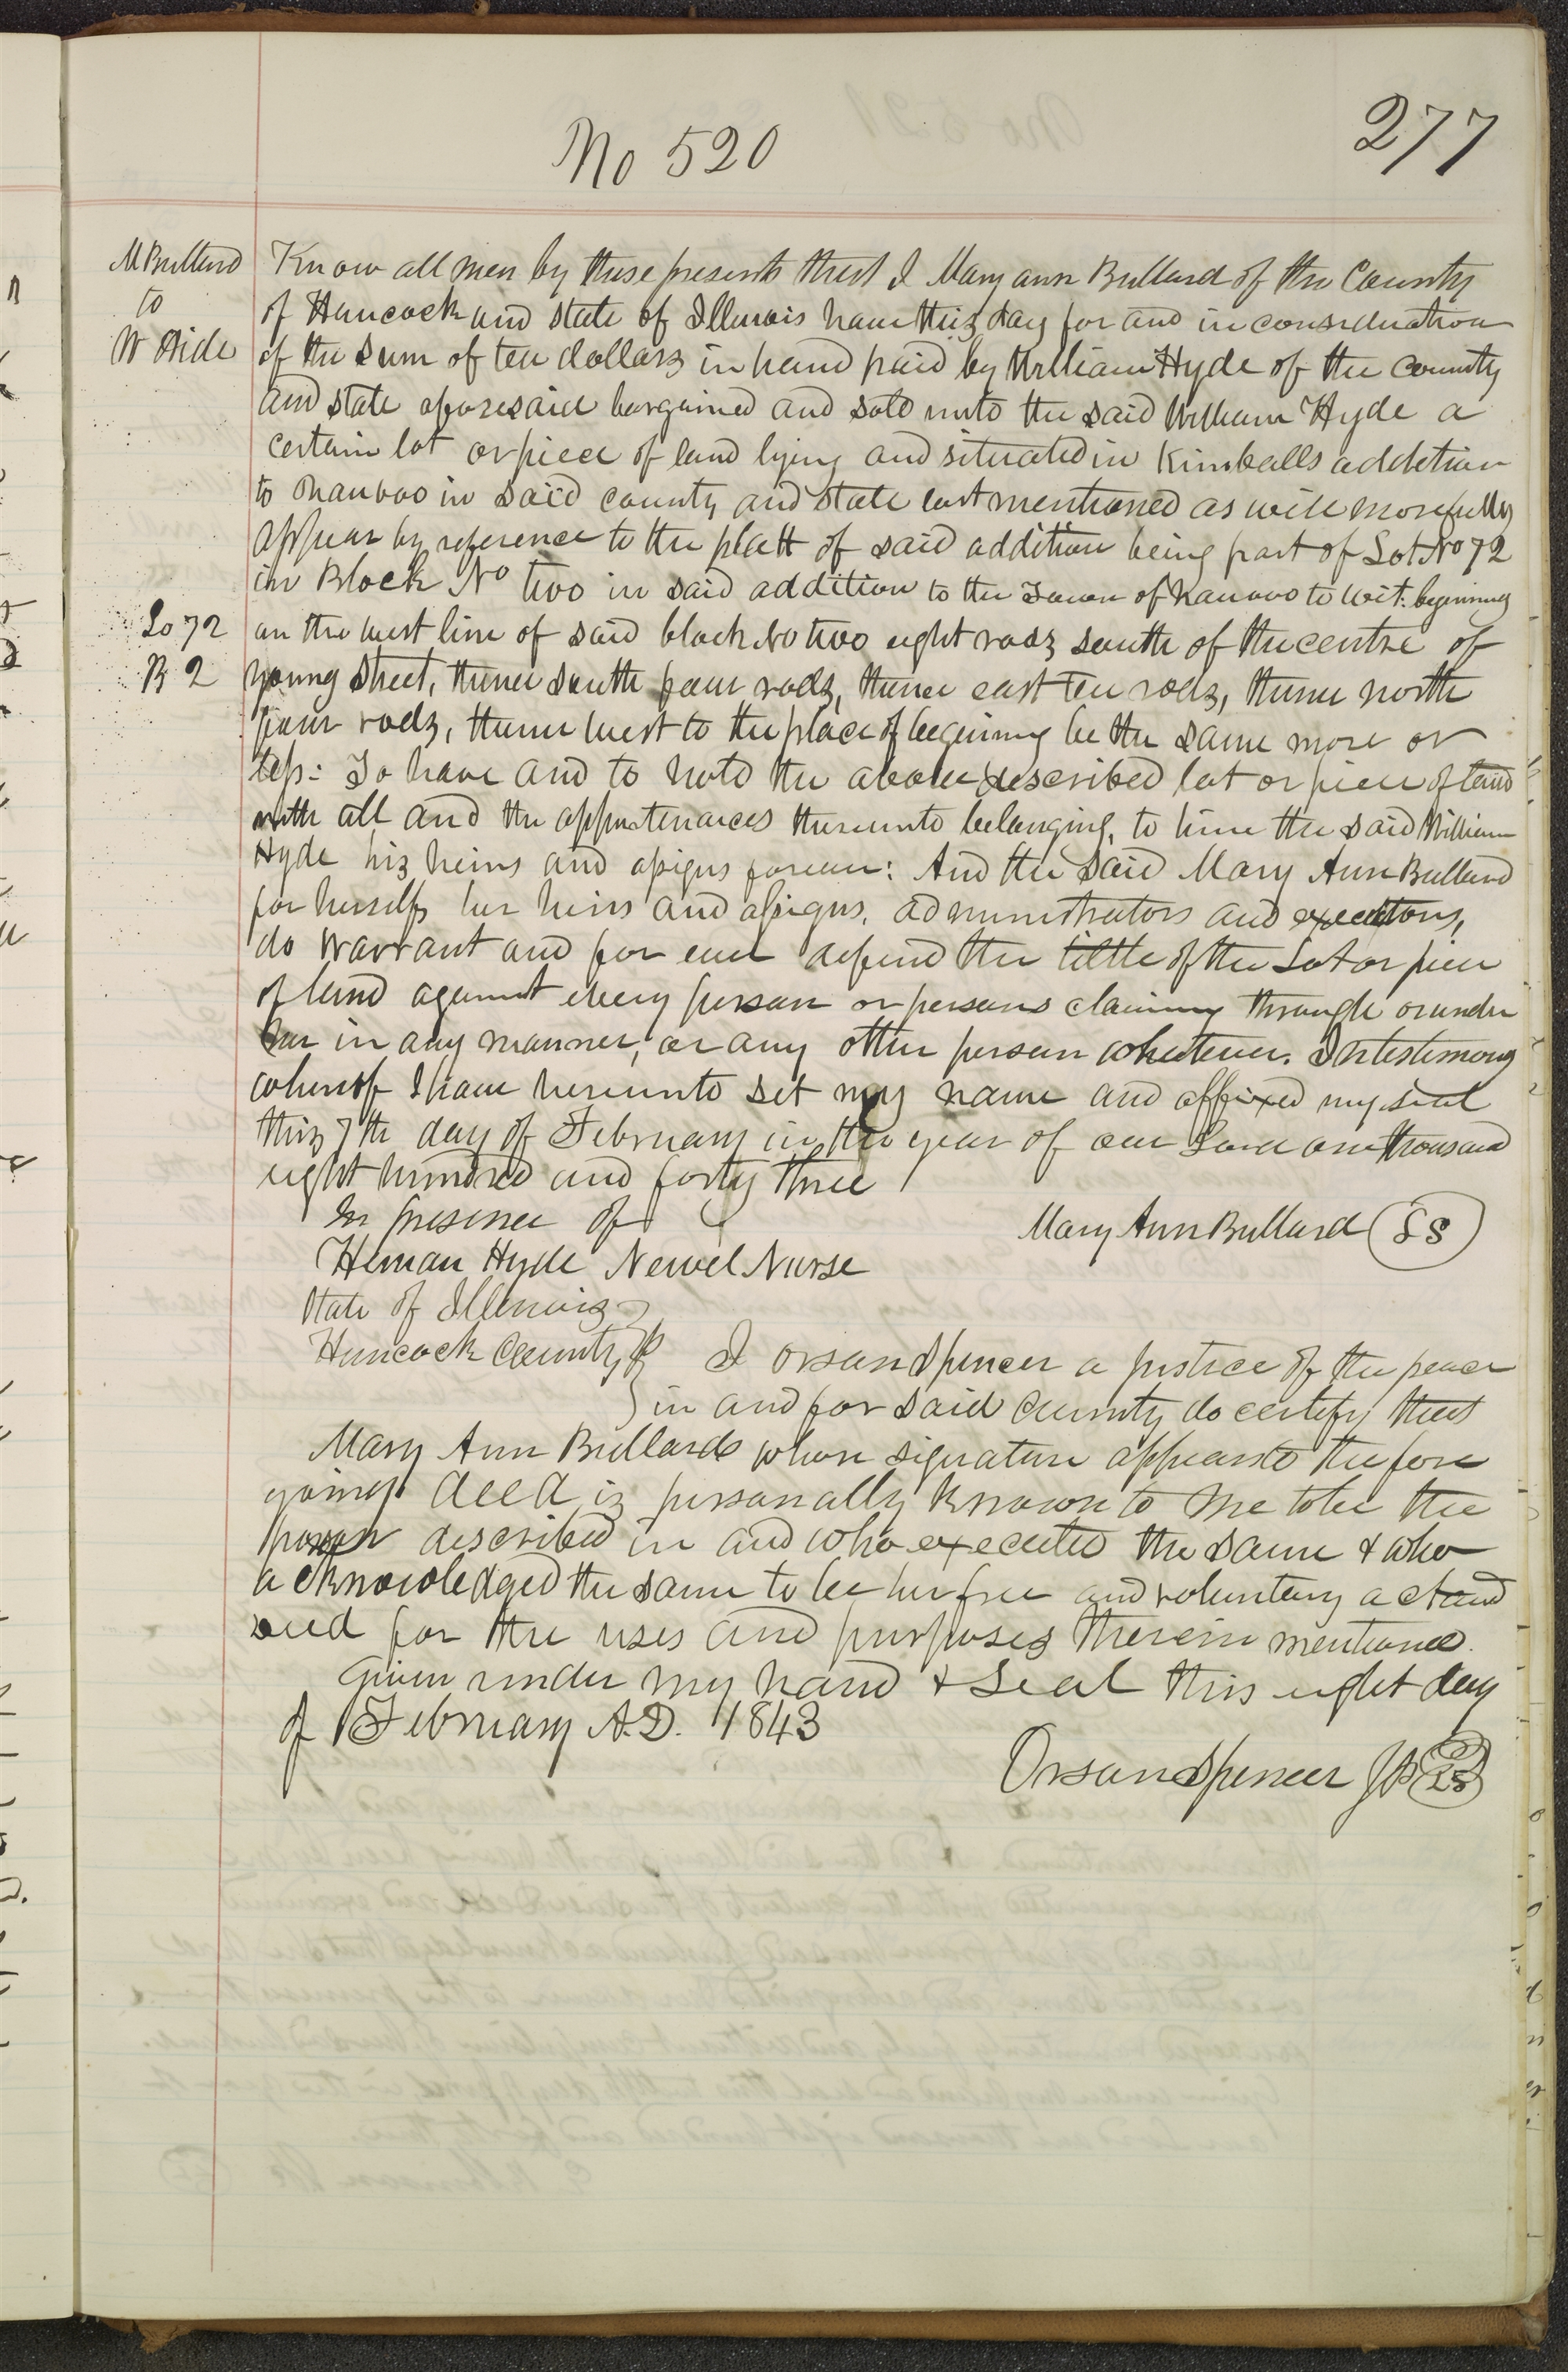 277
No 520
M Bullard
to
W Hide
Know all men by these presents that I Mary ann Bullard of the County
of Hancock and state of Illinois have this day for and in consideration
of the sum of ten dollars in hand paid by William Hyde of the county
and state aforesaid bargained and sold unto the said William Hyde a
certain lot or piece of land lying and situated in Kimballs addition
to Nauvoo in said county and state last mentioned as will more fully
appear by reference to the platt of said addition being part of Lot No 72
in Block No two in said addition to the Town of Nauvoo to wit: beginning
Lo 72
B 2
on the west line of said block No two eight rods south of the centre of
young street, thence south four rods, thence east ten rods, thence north
four rods, thence west to the place of beginning be the same more or
less: To have and to hold the above described lot or piece of land
with all and the appurtenances thereunto belonging, to him the said William
Hyde his heirs and assigns forever: And the said Mary Ann Bullard
for herself, her heirs and assigns, administrators and executors,
do warrant and for ever defend the tittle of the Lot or piece
of land against every person or persons claiming through or under
her in any manner, or any other person whatever. In testimony
whereof I have hereunto set my name and affixed my seal
this 7th day of February in the year of our Lord one thousand
eight hundred and forty three
In presence of
Mary Ann Bullard LS
Heman Hyde Newel Nurse
State of Illinois
Hancock County I Orson Spencer a justice of the peace
in and for said county do certify that
Mary Ann Bullard whose signature appears to the fore
going deed is personally known to me to be the
person described in and who executed the same & who
acknowledged the same to be her free and voluntary act and
deed for the uses and purposes therein mentioned.
Given under my hand & Seal this eight day
of February A.D. 1843
Orson Spencer JP LS